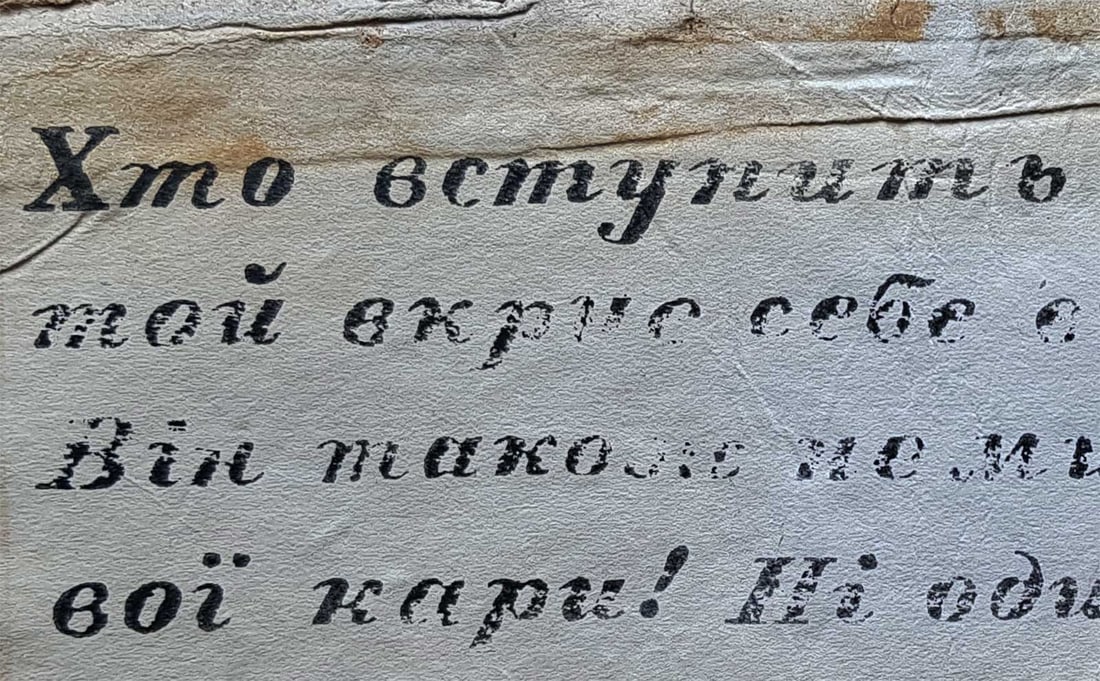 Хто вступить
той вкриє себе
Він також не ми
вої кари! Ні оди